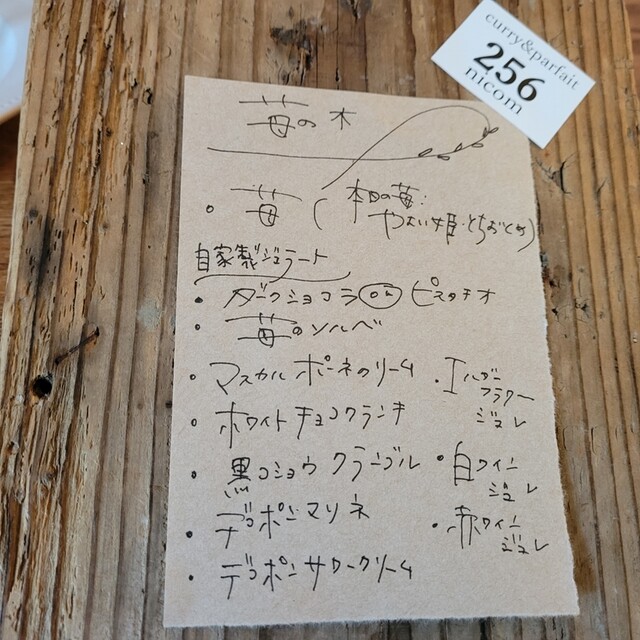 curry&parfait
256
nicom
苺の木
・苺(本日の苺:
やよい姫・とちおとめ)
自家製ジェラート
・ダークショコラ or ピスタチオ
・苺のソルベ
・マスカルポーネクリーム
・ホワイトチョコクランチ
・黒コショウクランブル
・デコポンマリネ
・デコポンサワークリーム
・エルダー
フラワー
ジュレ
・白ワイン
ジュレ
・赤ワイン
ジュレ